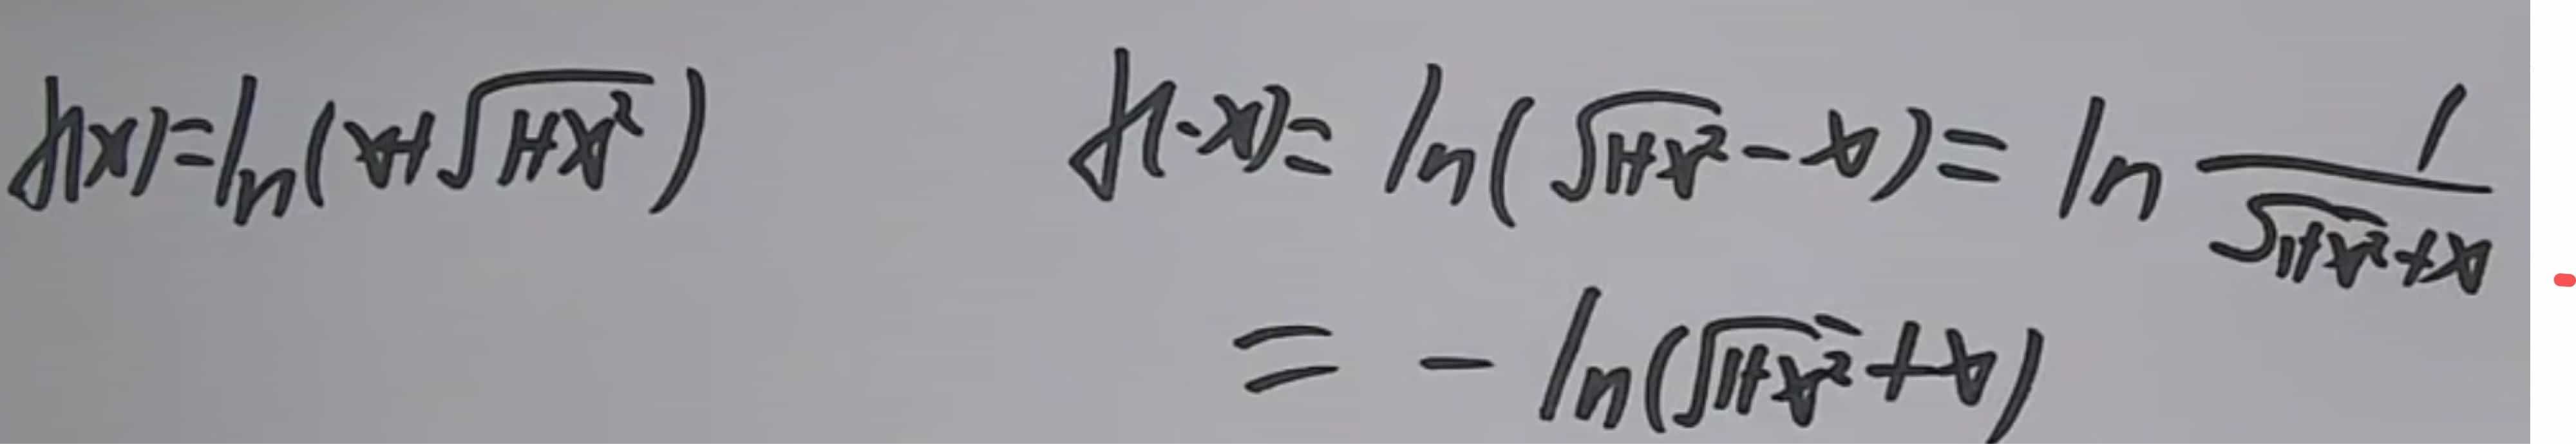 f(x)=ln(x+√(1+x²))
f(-x)=ln(√(1+x²)-x)=ln 1/(√(1+x²)+x)
=-ln(√(1+x²)+x)